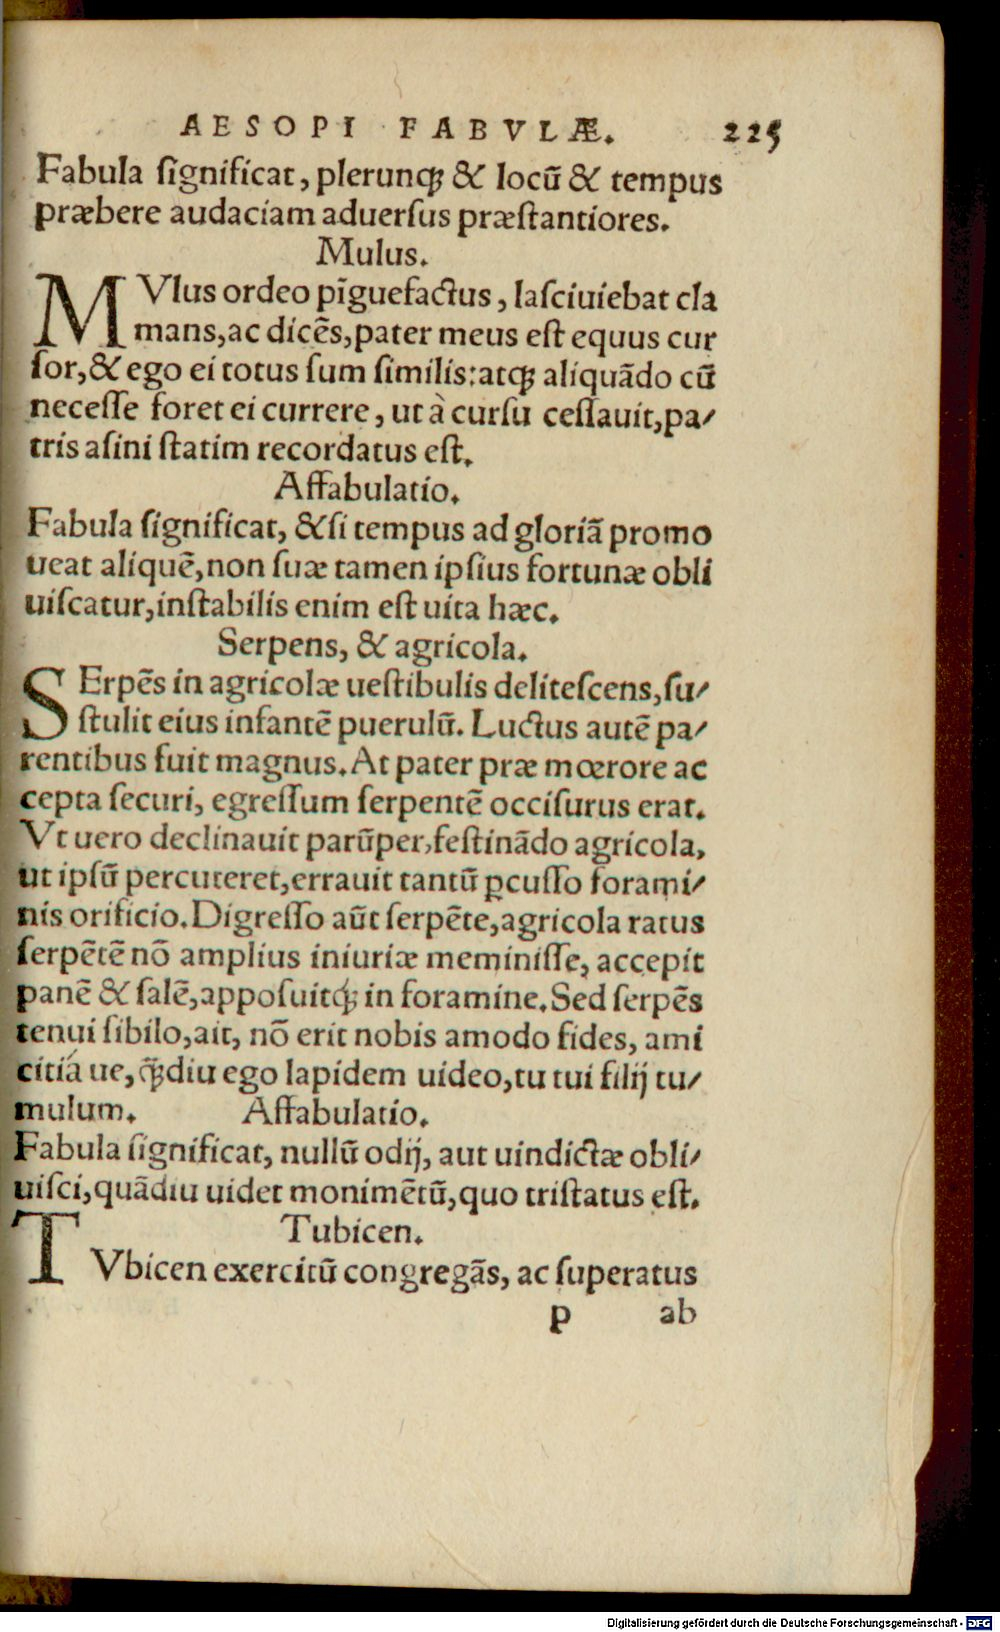 AESOPI FABVLÆ. 225
Fabula ſignificat, plerunq; & locũ & tempus
præbere audaciam aduerſus præſtantiores.
Mulus.
MVlus ordeo pĩguefactus, laſciuiebat cla
mans, ac dicẽs, pater meus eſt equus cur
ſor, & ego ei totus ſum ſimilis: atq; aliquãdo cũ
neceſſe foret ei currere, ut à curſu ceſſauit, pa/
tris aſini ſtatim recordatus eſt.
Affabulatio.
Fabula ſignificat, &ſi tempus ad gloriã promo
ueat aliquẽ, non ſuæ tamen ipſius fortunæ obli
uiſcatur, inſtabilis enim eſt uita hæc.
Serpens, & agricola.
SErpẽs in agricolæ ueſtibulis deliteſcens, ſu/
ſtulit eius infantẽ puerulũ. Luctus autẽ pa/
rentibus fuit magnus. At pater præ mœrore ac
cepta ſecuri, egreſſum ſerpentẽ occiſurus erat.
Vt uero declinauit parũper, feſtinãdo agricola,
ut ipſũ percuteret, errauit tantũ ꝑcuſſo forami/
nis orificio. Digreſſo aũt ſerpẽte, agricola ratus
ſerpẽtẽ nõ amplius iniuriæ meminiſſe, accepit
panẽ & ſalẽ, appoſuitq́; in foramine. Sed ſerpẽs
tenui ſibilo, ait, nõ erit nobis amodo fides, ami
citiá ue, q̃;diu ego lapidem uideo, tu tui filij tu/
mulum. Affabulatio.
Fabula ſignificat, nullũ odij, aut uindictæ obli/
uiſci, quãdiu uidet monimẽtũ, quo triſtatus eſt.
Tubicen.
TVbicen exercitũ congregãs, ac ſuperatus
p ab
Digitalisierung gefördert durch die Deutsche Forschungsgemeinschaft - DFG